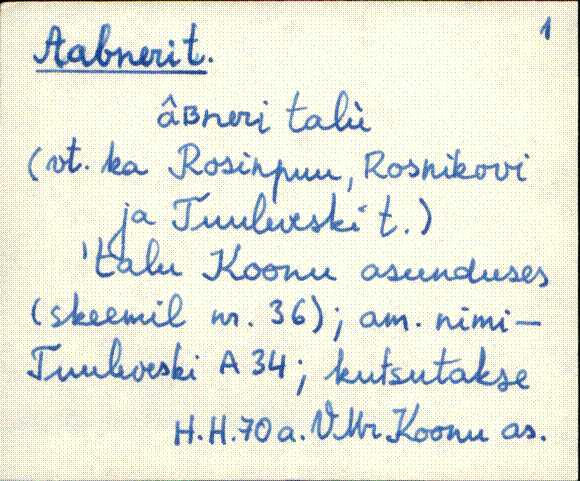 1
Aabneri t.
âʙneri talù
(vt. ka Rosinpuu, Rosnikovi
ja Tuuleveski t.)
'talu Koonu asunduses
(skeemil nr. 36); am. nimi—
Tuuleveski A 34; kutsutakse
H.H. 70 a. VMr Koonu as.